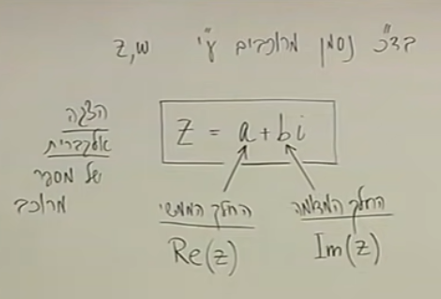 בד"כ נסמן מרוכבים ע"י z,w
הצגה
אלגברית
של מספר
מרוכב
z = a+bi
החלק הממשי
Re(z)
החלק המדומה
Im(z)